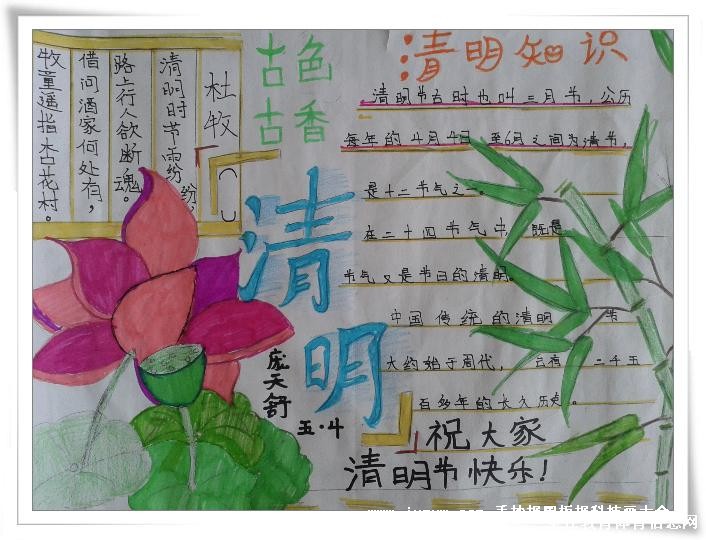 杜牧
清明时节雨纷纷，
路上行人欲断魂。
借问酒家何处有，
牧童遥指杏花村。
古色
古香
清明
庞天舒
五·4
清明知识
清明节古时也叫三月节，公历
每年的4月4日至6月之间为清节，
是十二节气之一。
在二十四节气中，既是
节气又是节日的清明。
中国传统的清明节
大约始于周代，二千五
百多年的长久历史。
祝大家
清明节快乐！